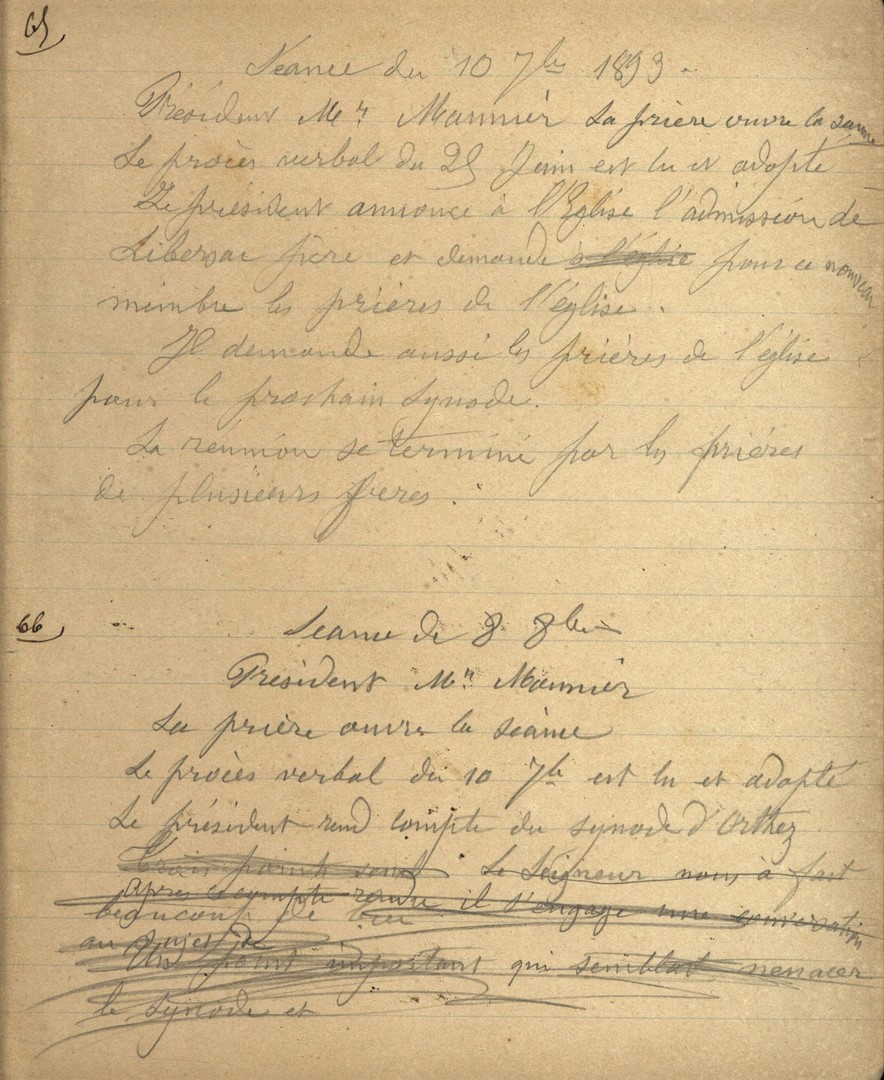 65
Séance du 10 7bre 1893.
Président Mr. Mounier La prière ouvre la séance
Le procès verbal du 25 Juin est lu et adopté
Le président annonce à l'Eglise l'admission de
Libersac père et demande à l'église pour ce nouveau
membre les prières de l'église.
Il demande aussi les prières de l'église
pour le prochain synode.
La réunion se termine par les prières
de plusieurs freres.
66
Séance du 8 8bre
Président Mr. Mounier
La prière ouvre la séance
Le procès verbal du 10 7bre est lu et adopté
Le président rend compte du synode d'Orthez
Trois points sont Le Seigneur nous à fait
Apres compte rendu il s'engage une conversation
beaucoup de bien
au sujet de
Un point important qui semblait menacer
le synode et